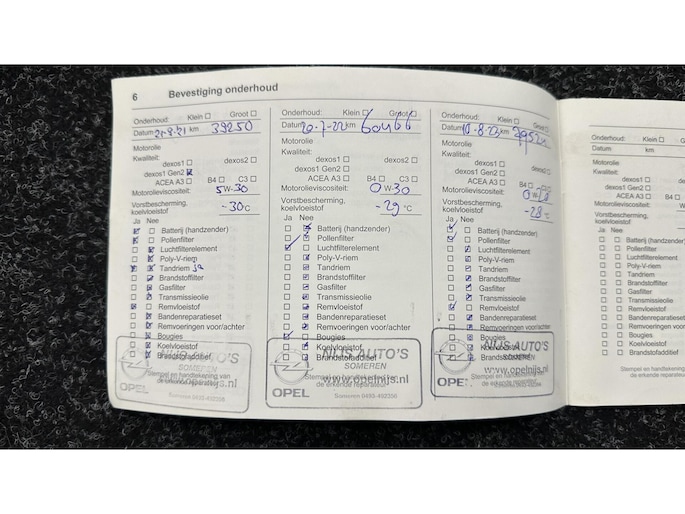 6 Bevestiging onderhoud
Onderhoud: Klein ☐ Groot ☐
Datum 21-9-21 km 39250
Motorolie
Kwaliteit:
dexos1 ☐ dexos2 ☐
dexos1 Gen2
ACEA A3 ☐ B4 ☐ C3 ☐
Motorolieviscositeit: 5W-30
Vorstbescherming,
koelvloeistof -30 C
Ja Nee
Batterij (handzender)
Pollenfilter
Luchtfilterelement
Poly-V-riem
Tandriem ja
Brandstoffilter
Gasfilter
Transmissieolie
Remvloeistof
Bandenreparatieset
Remvoeringen voor/achter
Bougies
Koelvloeistof
Brandstofadditief
Stempel en handtekening van
de erkende reparateur
NIJS AUTO'S
SOMEREN
www.opelnijs.nl
OPEL
Someren 0493-492206
Onderhoud: Klein ☐ Groot ☐
Datum 20-7-22 km 60466
Motorolie
Kwaliteit:
dexos1 ☐ dexos2 ☐
dexos1 Gen2 ☐
ACEA A3 ☐ B4 ☐ C3 ☐
Motorolieviscositeit: 0W-30
Vorstbescherming,
koelvloeistof -29 °C
Ja Nee
Batterij (handzender)
Pollenfilter
Luchtfilterelement
Poly-V-riem
Tandriem
Brandstoffilter
Gasfilter
Transmissieolie
Remvloeistof
Bandenreparatieset
Remvoeringen voor/achter
Bougies
Koelvloeistof
Brandstofadditief
NIJS AUTO'S
SOMEREN
Stempel en handtekening van
www.opelnijs.nl
de erkende reparateur
OPEL
Someren 0493-492206
Onderhoud: Klein ☐ Groot ☐
Datum 10-8-23 km
Motorolie
Kwaliteit:
dexos1 ☐ dexos2 ☐
dexos1 Gen2 ☐
ACEA A3 ☐ B4 ☐ C3 ☐
Motorolieviscositeit:
Vorstbescherming,
koelvloeistof -28 °C
Ja Nee
Batterij (handzender)
Pollenfilter
Luchtfilterelement
Poly-V-riem
Tandriem
Brandstoffilter
Gasfilter
Transmissieolie
Remvloeistof
Bandenreparatieset
Remvoeringen voor/achter
Bougies
Koelvloeistof
Brandstofadditief
NIJS AUTO'S
SOMEREN
www.opelnijs.nl
Stempel en handtekening van
de erkende reparateur
OPEL
Onderhoud: Klein ☐
Datum km
Motorolie
Kwaliteit:
dexos1 ☐
dexos1 Gen2 ☐
ACEA A3 ☐ B4 ☐
Motorolieviscositeit: W
Vorstbescherming,
koelvloeistof
Ja Nee
Batterij (handzender)
Pollenfilter
Luchtfilterelement
Poly-V-riem
Tandriem
Brandstoffilter
Gasfilter
Transmissieolie
Remvloeistof
Bandenreparatieset
Remvoeringen voor/achter
Bougies
Koelvloeistof
Brandstofadditief
Stempel en handtekening
de erkende reparateur